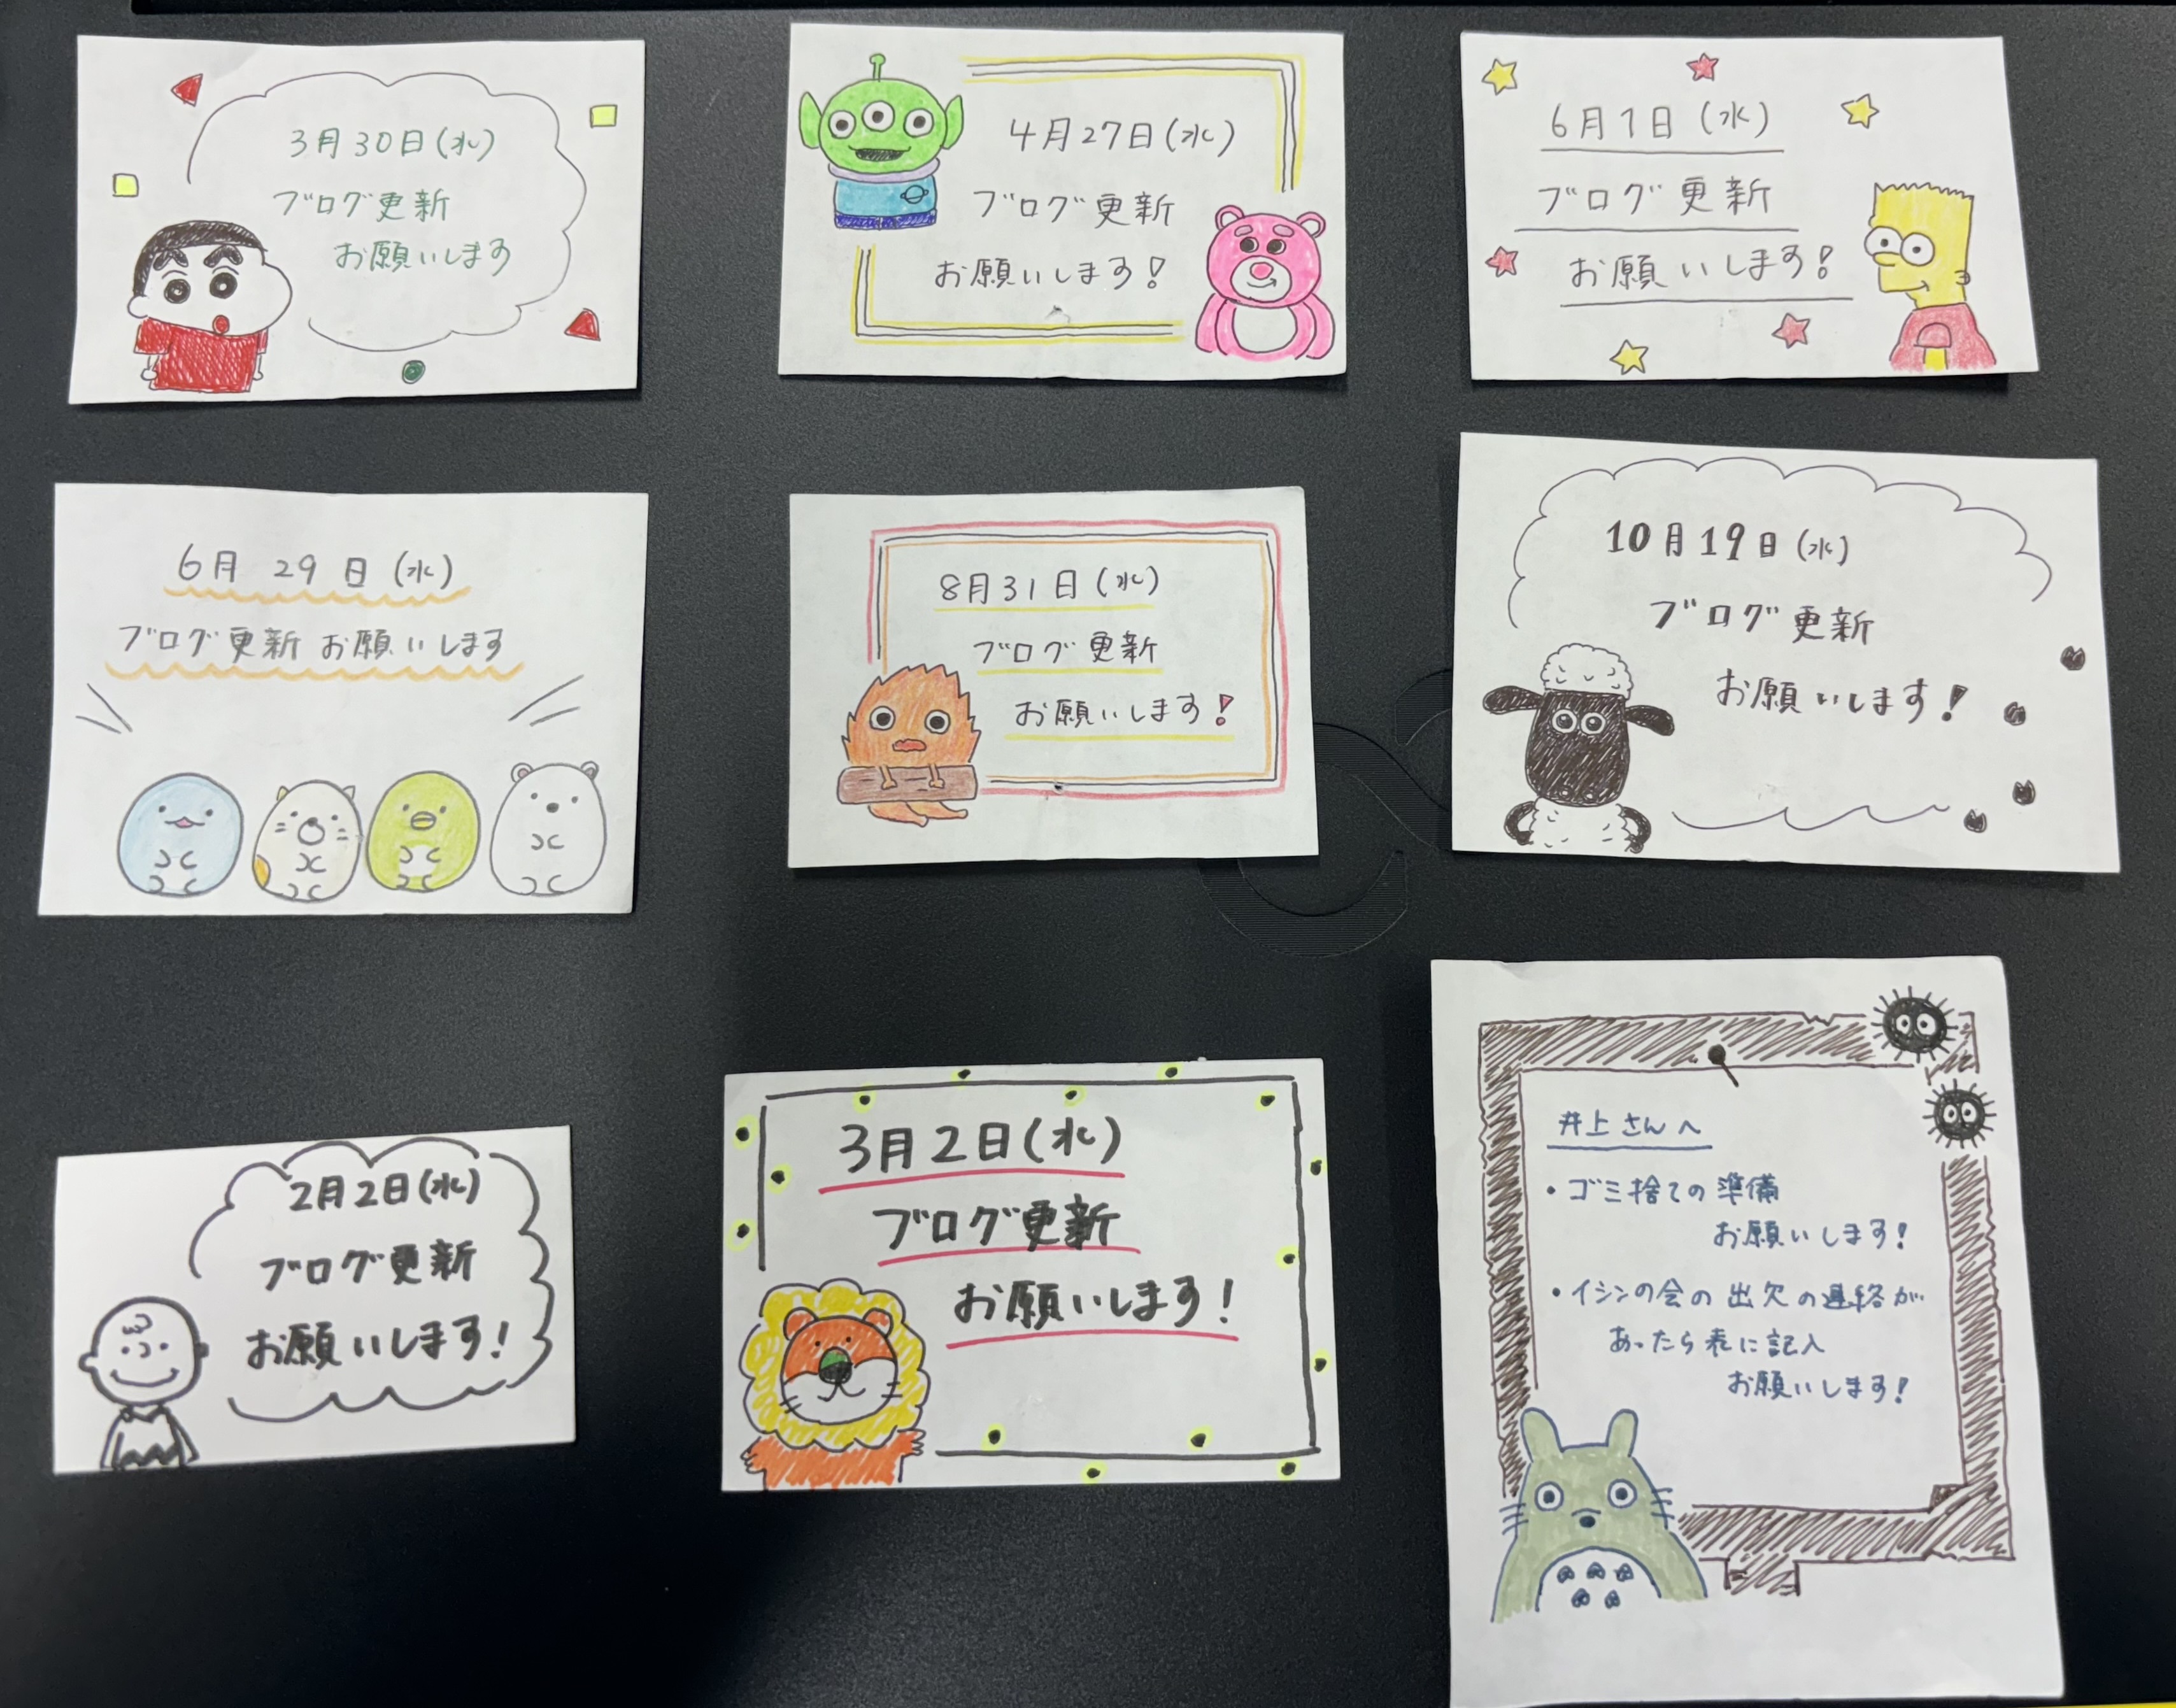 3月30日(水)
ブログ更新
お願いします
4月27日(水)
ブログ更新
お願いします!
6月1日(水)
ブログ更新
お願いします!
6月29日(水)
ブログ更新お願いします
8月31日(水)
ブログ更新
お願いします!
10月19日(水)
ブログ更新
お願いします!
2月2日(水)
ブログ更新
お願いします!
3月2日(水)
ブログ更新
お願いします!
井上さんへ
・ゴミ捨ての準備
お願いします!
・イシンの会の出欠の連絡が
あったら表に記入
お願いします!